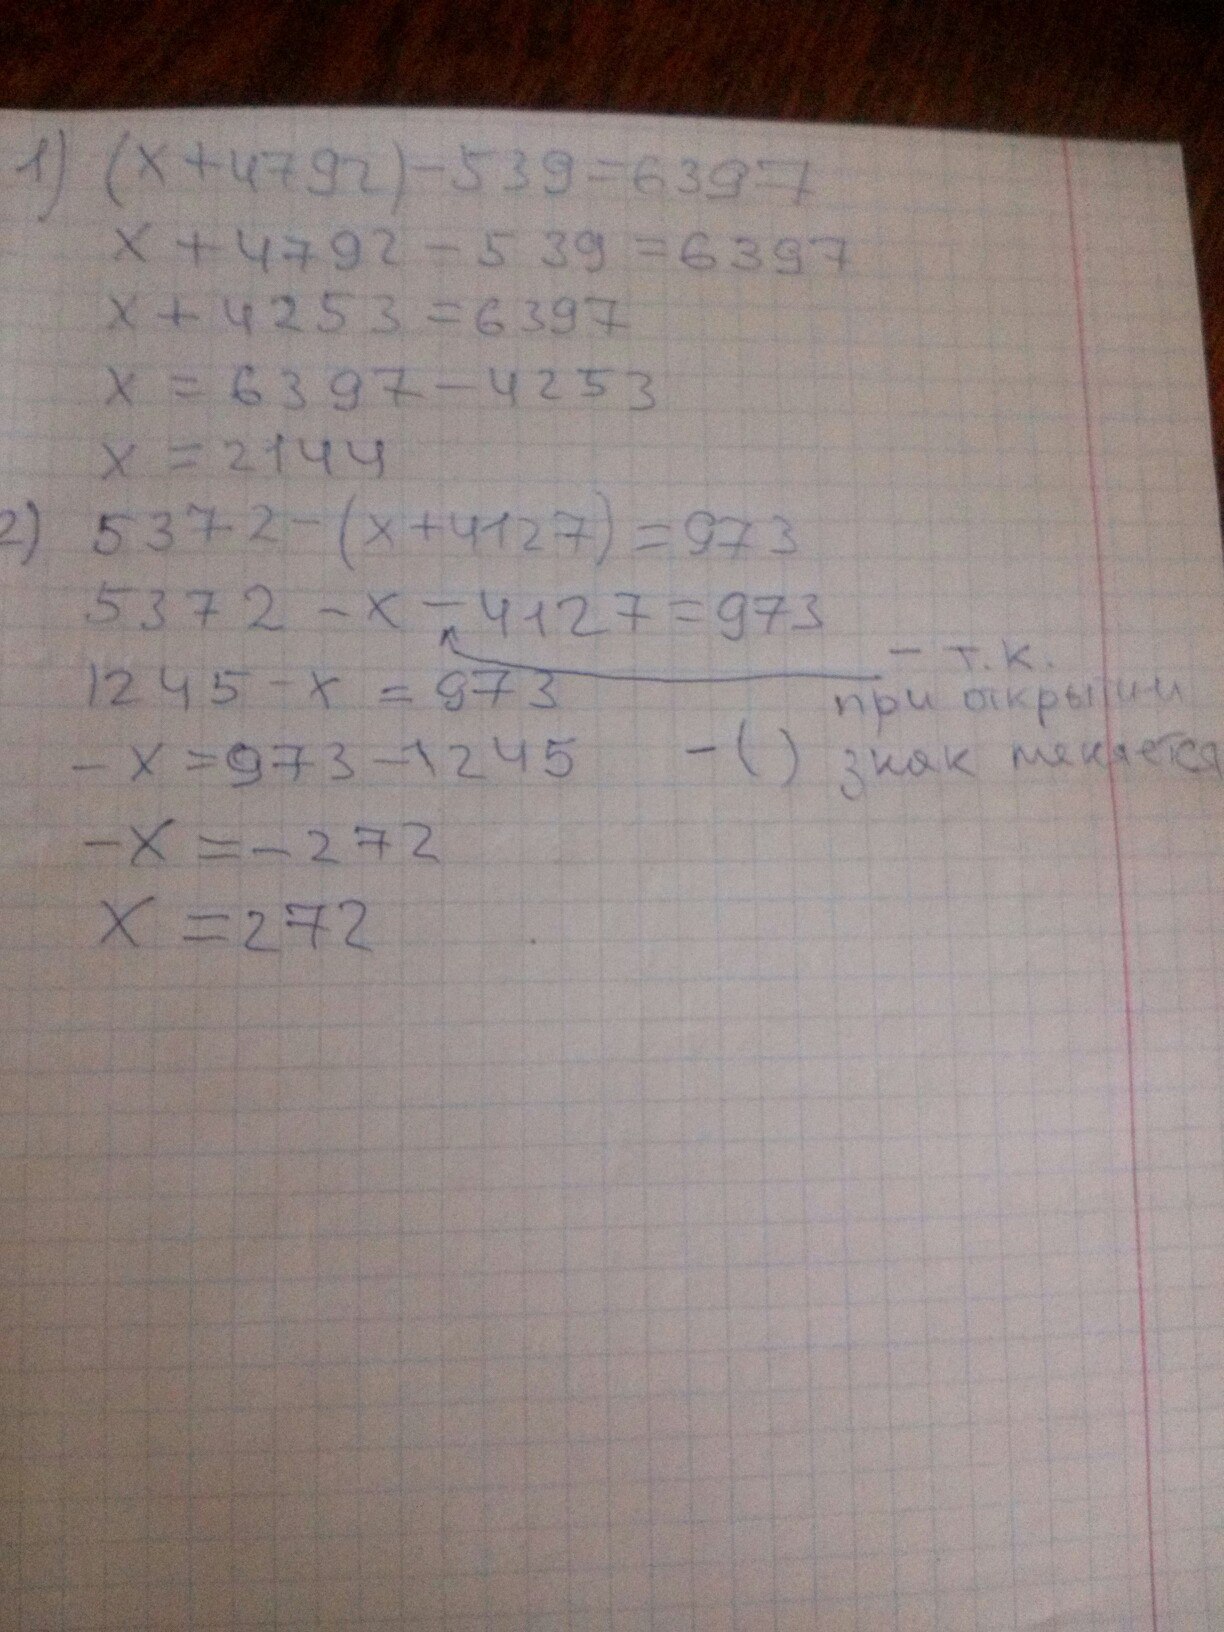 1) (x+4792)-539=6397
x+4792-539=6397
x+4253=6397
x=6397-4253
x=2144
2) 5372-(x+4127)=973
5372-x-4127=973
- т.к.
1245-x=973
при открытии
-x=973-1245
-( ) знак меняется
-x=-272
x=272